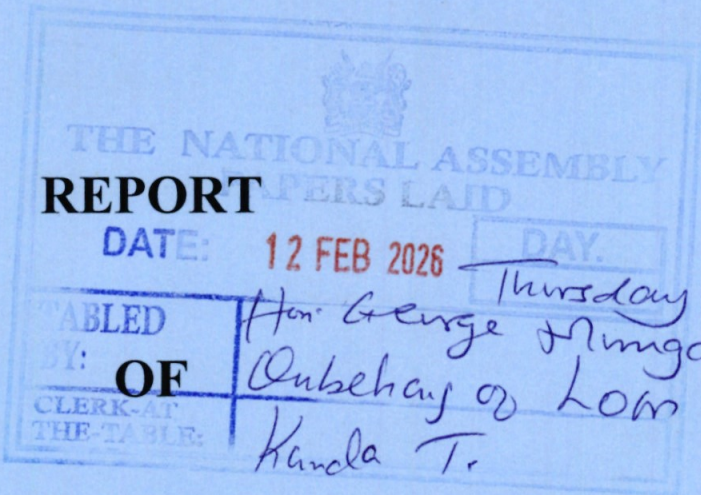 THE NATIONAL ASSEMBLY
PAPERS LAID
REPORT
DATE: 12 FEB 2026
DAY.
Thursday
TABLED
BY:
Hon. George
OF
LOM
CLERK-AT
THE-TABLE:
Kanda T.